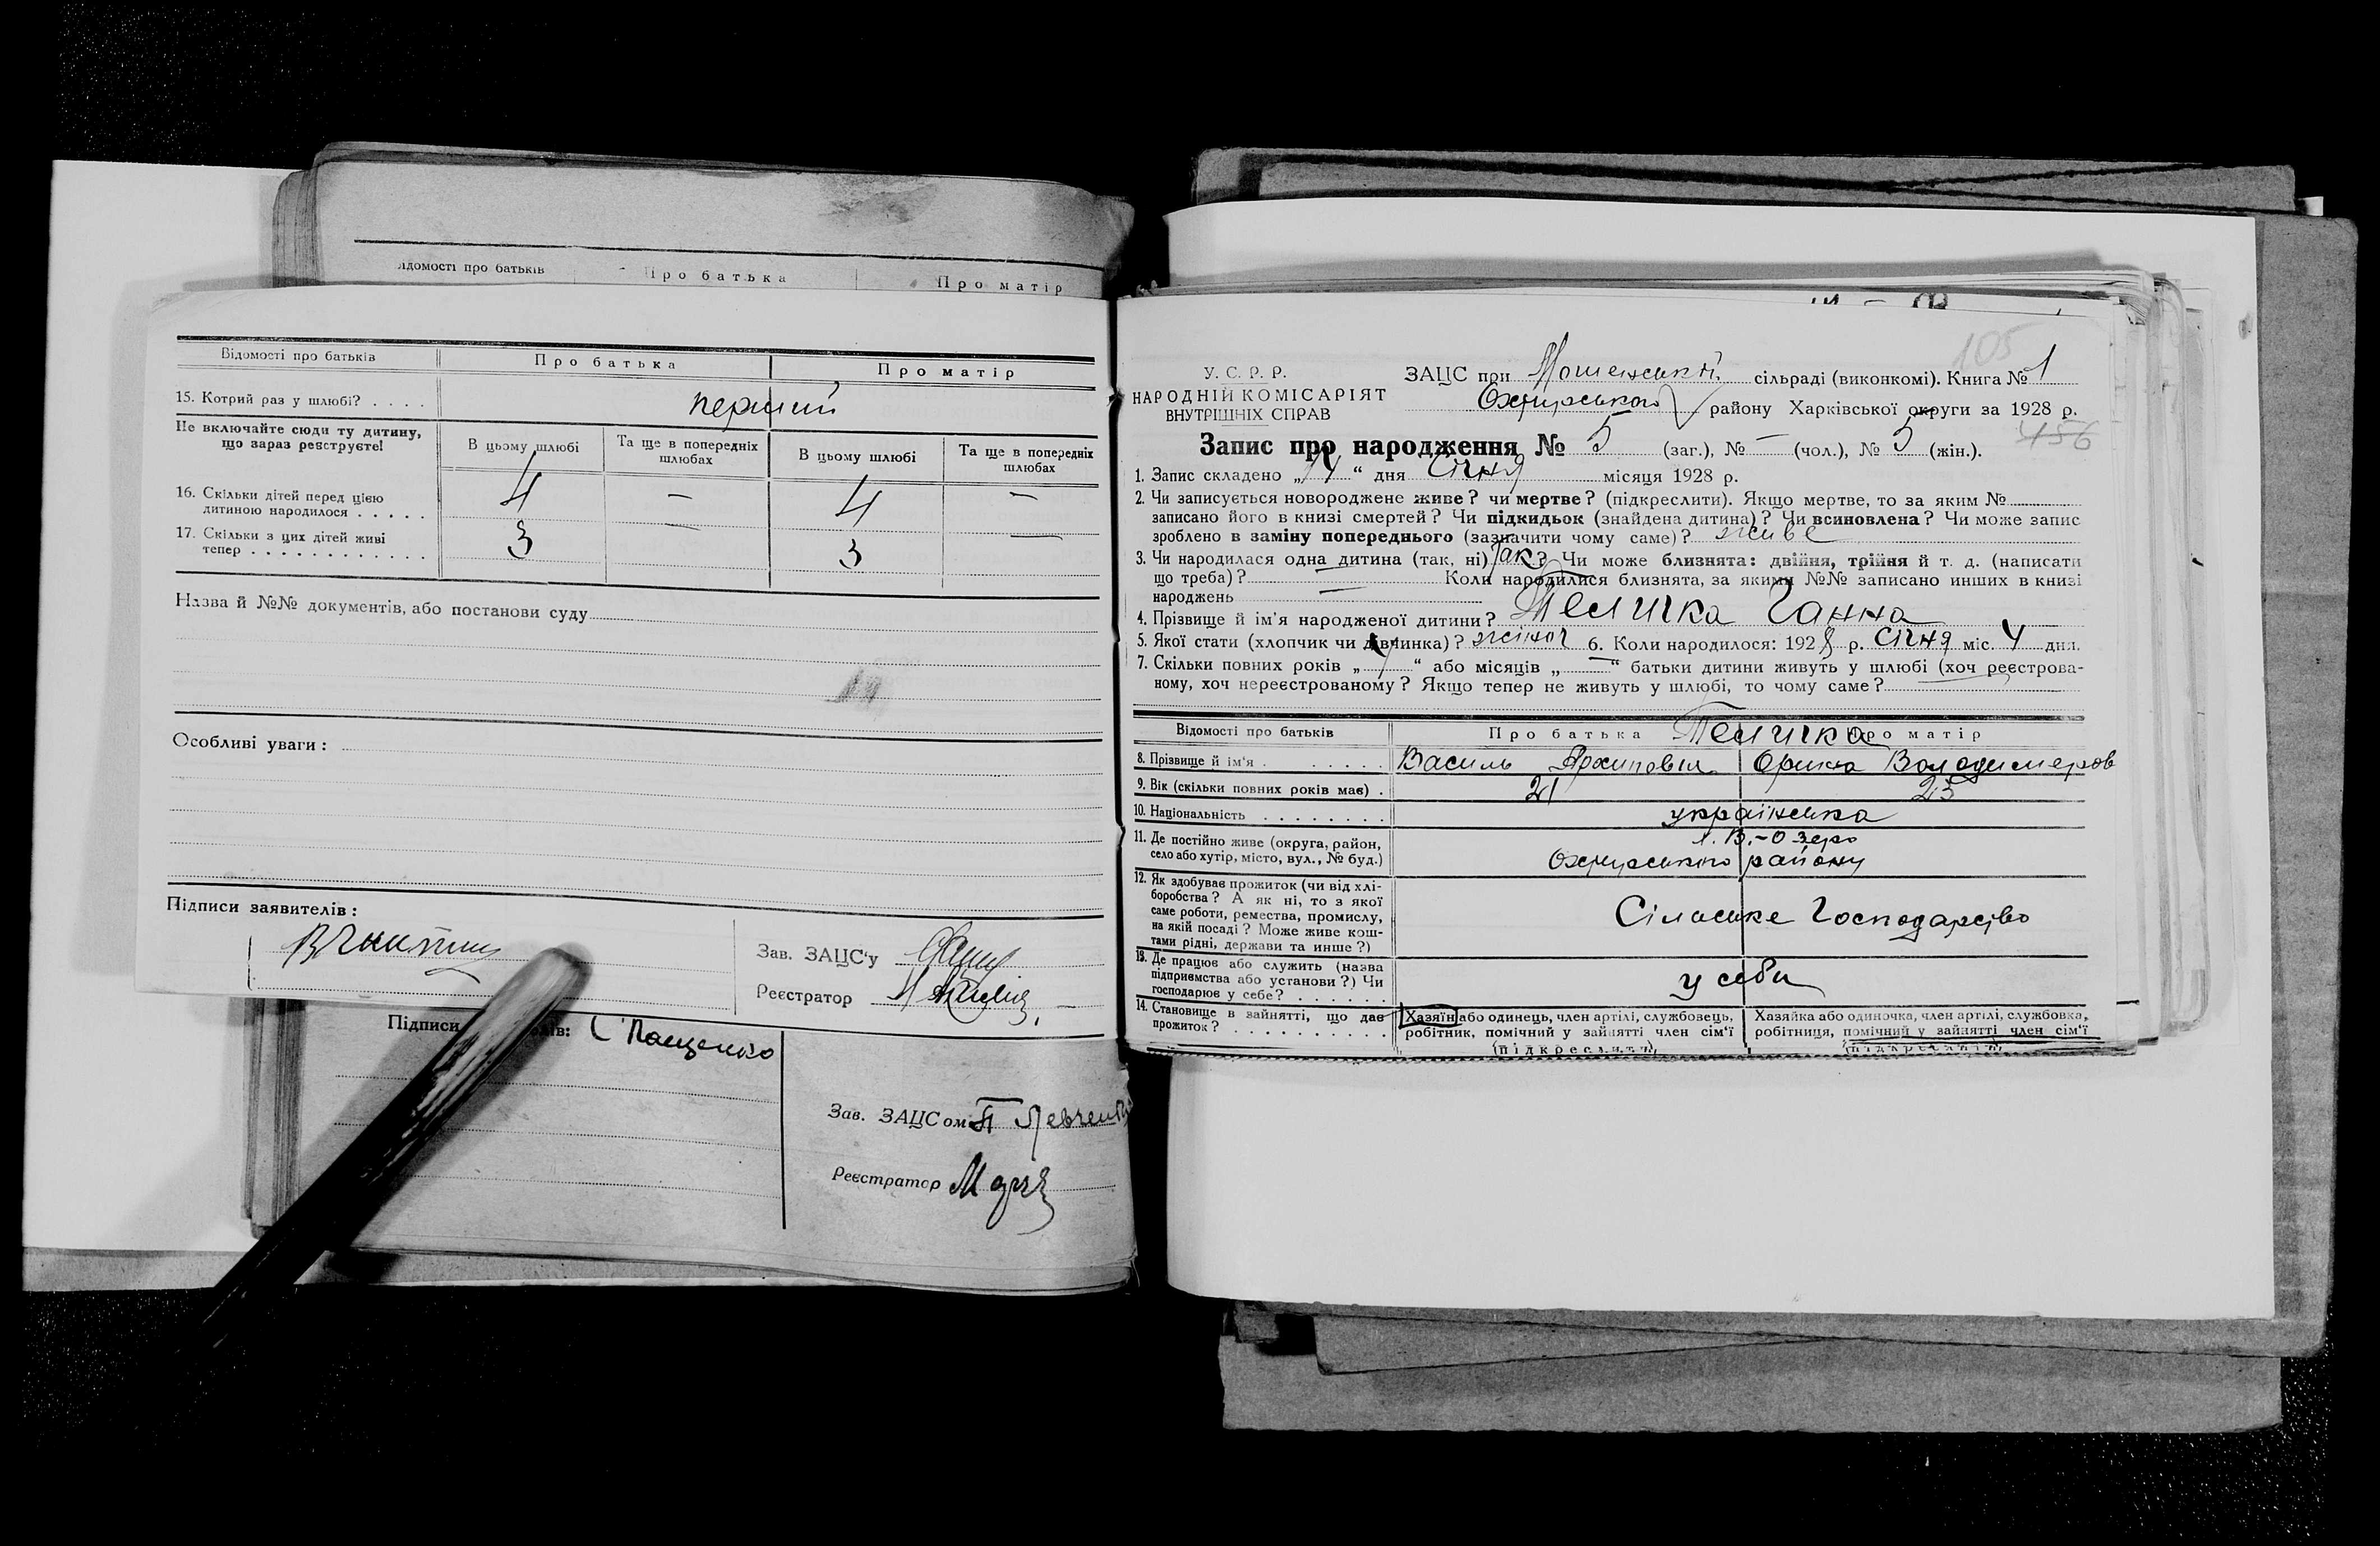 Відомості про батьків
Про батька
Про матір
Відомості про батьків
Про батька
Про матір
15. Котрий раз у шлюбі? . . . .
перший
Не включайте сюди ту дитину,
що зараз реєструєте!
В цьому шлюбі
Та ще в попередніх
шлюбах
В цьому шлюбі
Та ще в попередніх
шлюбах
16. Скільки дітей перед цією
дитиною народилося . . . . .
4 — 4 —
17. Скільки з цих дітей живі
тепер . . . . . . . . . . . .
3 — 3 —
Назва й №№ документів, або постанови суду
Особливі уваги:
Підписи заявителів:
Зав. ЗАЦС'у
Реєстратор
Підписи
Пащенко
Зав. ЗАЦСом П Левченко
Реєстратор
105
У. С. Р. Р.
НАРОДНІЙ КОМІСАРІЯТ
ВНУТРІШНІХ СПРАВ
ЗАЦС при сільраді (виконкомі). Книга № 1
Охтирського району Харківської округи за 1928 р.
456
Запис про народження № 5 (заг.), № — (чол.), № 5 (жін.).
1. Запис складено „14“ дня Січня місяця 1928 р.
2. Чи записується новороджене живе? чи мертве? (підкреслити). Якщо мертве, то за яким №
записано його в книзі смертей? Чи підкидьок (знайдена дитина)? Чи всиновлена? Чи може запис
зроблено в заміну попереднього (зазначити чому саме)? живе
3. Чи народилася одна дитина (так, ні) Так? Чи може близнята: двійня, трійня й т. д. (написати
що треба)? Коли народилися близнята, за якими №№ записано инших в книзі
народжень —
4. Прізвище й ім'я народженої дитини? Теличка Ганна
5. Якої стати (хлопчик чи дівчинка)? жіноч 6. Коли народилося: 1928 р. Січня міс. 4 дня.
7. Скільки повних років „ “ або місяців „—“ батьки дитини живуть у шлюбі (хоч реєстрова-
ному, хоч нереєстрованому? Якщо тепер не живуть у шлюбі, то чому саме?
Відомості про батьків
Про батька
Теличка
Про матір
8. Прізвище й ім'я . . . . . .
Василь Архипович
Орина Володимеров
9. Вік (скільки повних років має) .
25
10. Національність . . . . . . . .
українська
11. Де постійно живе (округа, район,
село або хутір, місто, вул., № буд.)
В.-Озеро
Охтирського району
12. Як здобуває прожиток (чи від хлі-
боробства? А як ні, то з якої
саме роботи, ремества, промислу,
на якій посаді? Може живе кош-
тами рідні, держави та инше?)
Сільське Господарство
13. Де працює або служить (назва
підприємства або установи?) Чи
господарює у себе? . . . . . .
у себи
14. Становище в зайнятті, що дає
прожиток? . . . . . . . . . .
Хазяїн або одинець, член артілі, службовець,
робітник, помічний у зайнятті член сім'ї
(підкреслити)
Хазяйка або одиночка, член артілі, службовка,
робітниця, помічний у зайнятті член сім'ї
(підкреслити)